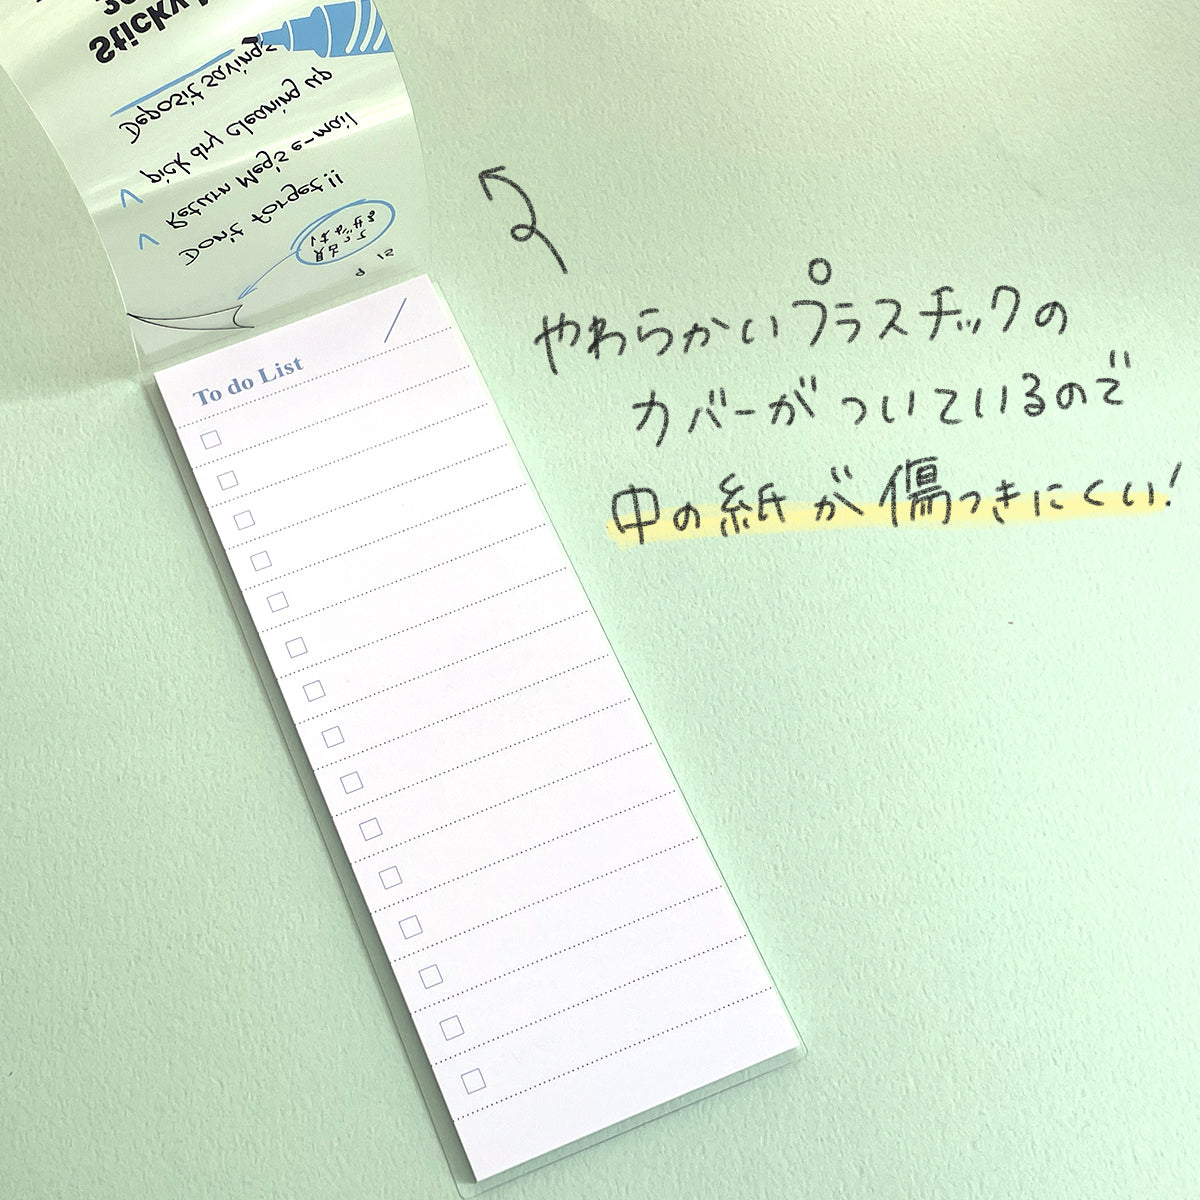 Sticky
Deposit savings
pick dry cleaning up
Return Meg's e-mail
Don't forget!!
貼って
はがせる
To do List
やわらかいプラスチックの
カバーがついているので
中の紙が傷つきにくい!